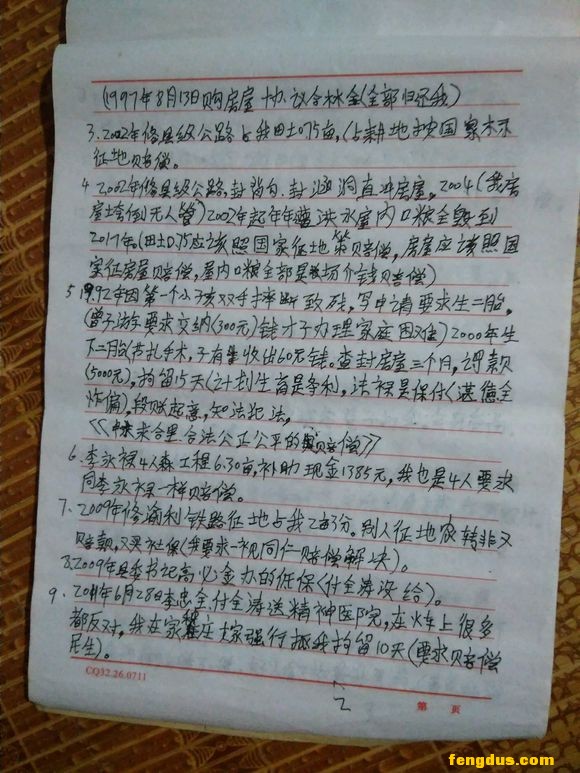 (1997年8月13日购房屋协议合林金(全部归还我)
3.2002年修县级公路占我田土0.75亩,(占耕地按国家标示
征地赔偿。
4.2002年修县级公路封背沟,封涵洞直冲房屋,2004(我房
屋垮倒无人管)2002年起年年洪水屋内口粮全毁到
2017年。(田土0.75应该照国家征地策赔偿,房屋应该照国
家征房屋赔偿,屋内口粮全部是市场介钱赔偿)
5 1992年因第一个小孩双手摔断致残,写申请要求生二胎,
要求交纳(300元)钱才予办理家庭困难)2000年生
下二胎(节扎手术,子有收出60元钱。查封房屋三个月,罚款
(5000元),拘留15天(计划生育是李利,法禄是保付(湛德全
诈偏),段贱起意,知法犯法,
《要求合理合法公正公平的赔偿》
6.李永禄4人森工程6.30亩,补助现金1385元,我也是4人要求
同李永禄一样赔偿。
7.2009年修渝利铁路征地占我2部分。别人征地农转非又
赔款,又买社保(我要求一视同仁赔偿解决)。
8.2009年县委书记高必金办的低保(付全涛没给)。
9.2011年6月28日李忠全付全涛送精神医院,在火车上很多
都反对,我在家大家强行抓我拘留10天(要求赔偿
民生)。
CQ32.26.0711
第 页
2
fengdus.com